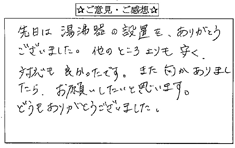 ☆ご意見・ご感想☆
先日は湯沸器の設置を、ありがとう
ございました。他のところよりも安く、
対応も良かったです。また何かありまし
たら、お願いしたいと思います。
どうもありがとうございました。